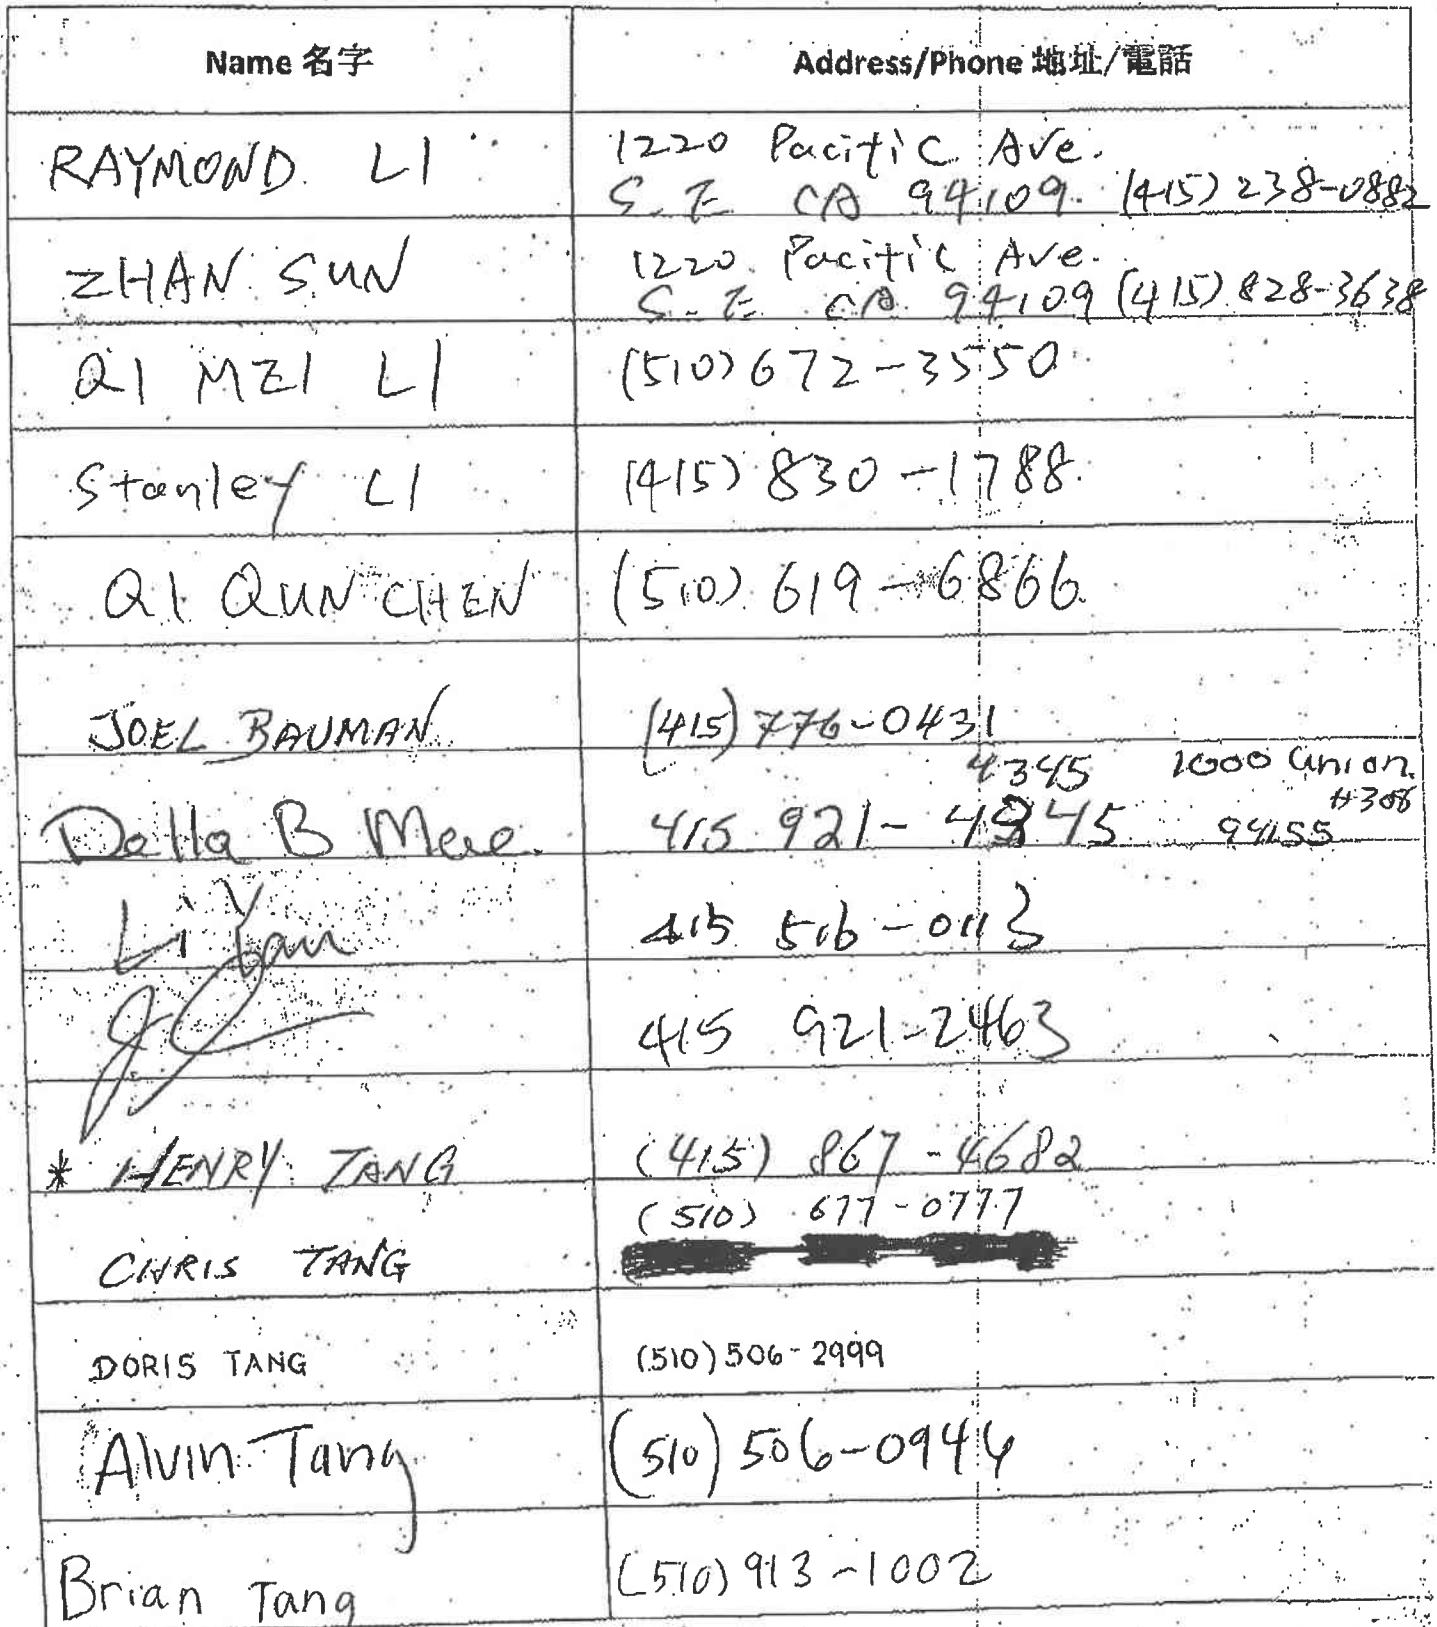 Name 名字 Address/Phone 地址/電話
RAYMOND LI 1220 Pacific Ave.
S.F. CA 94109. (415) 238-0882
ZHAN SUN 1220 Pacific Ave.
S.F. CA 94109 (415) 828-3638
QI MEI LI (510) 672-3550
Stanley LI (415) 830-1788
QI QUN CHEN (510) 619-6866
JOEL BAUMAN (415) 776-0431
4345 1000 Union
#308
Della B 415 921- 45 94155
Li Yau 415 516-0113
415 921-2463
* HENRY TANG (415) 867-4682
(510) 677-0777
CHRIS TANG
DORIS TANG (510) 506-2999
Alvin Tang (510) 506-0944
Brian Tang (510) 913-1002